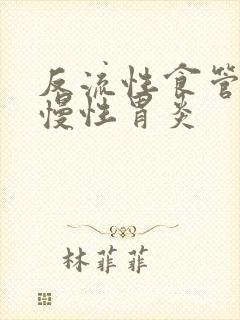 反流性食管
慢性胃炎
林菲菲